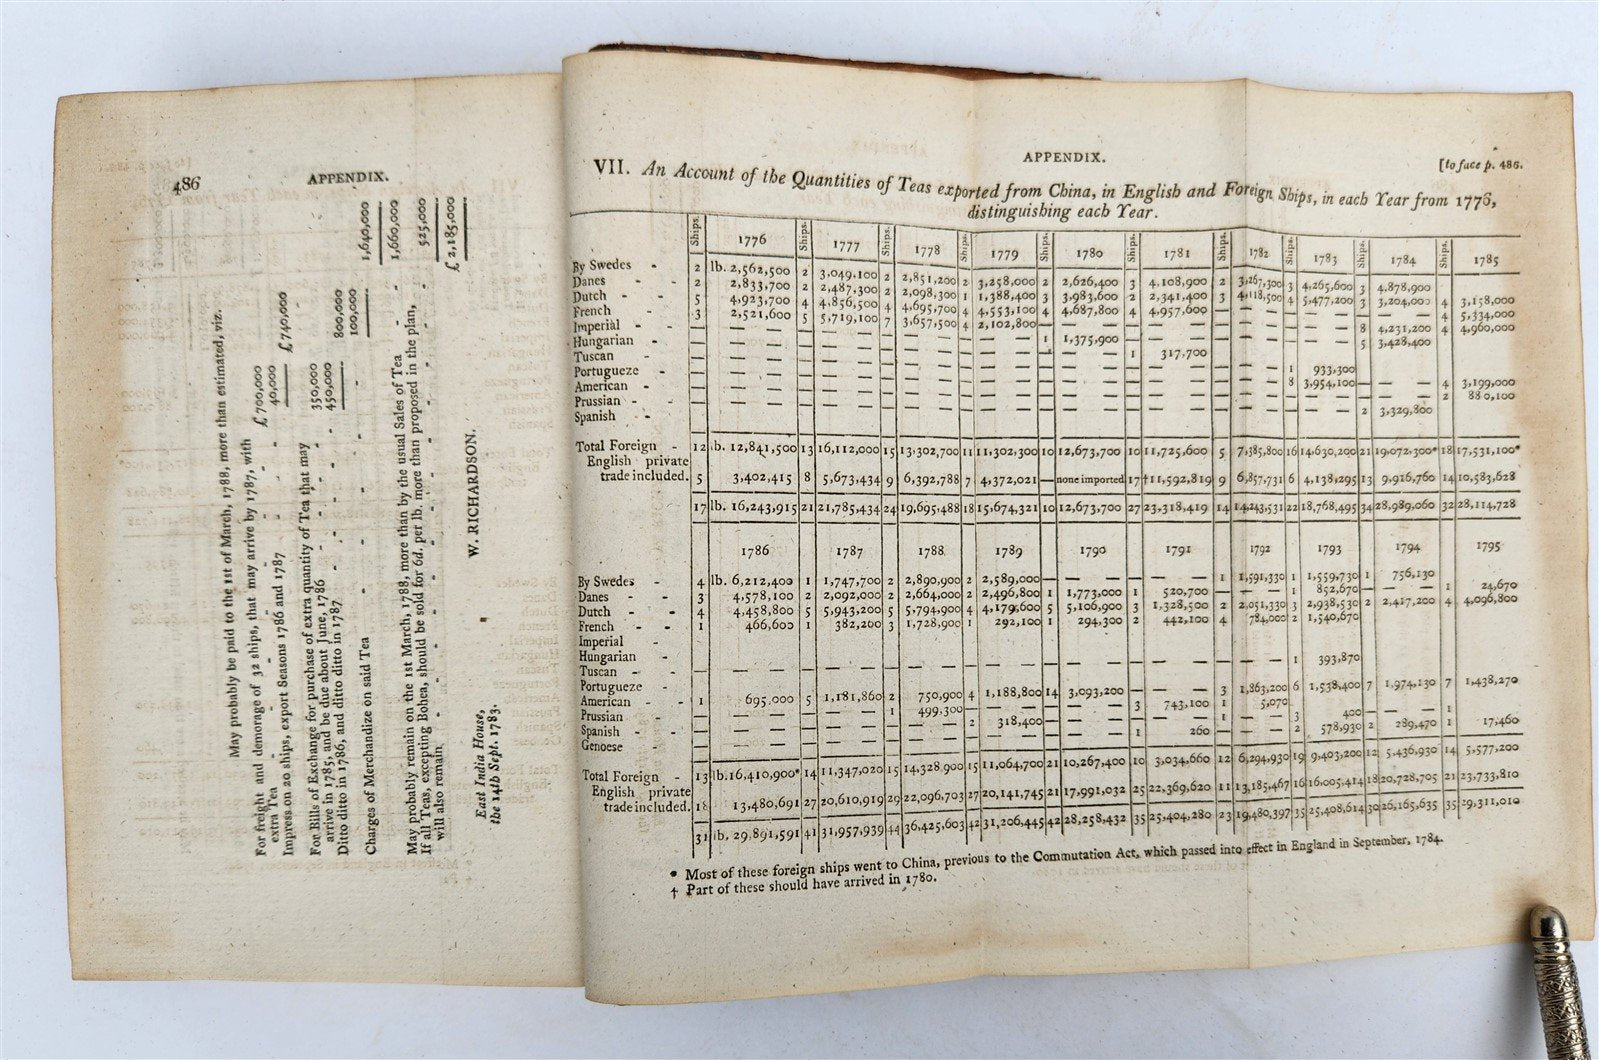 486
APPENDIX.
May probably be paid to the 1st of March, 1788, more than estimated, viz.
For freight and demorage of 32 ships, that may arrive by 1787, with
extra Tea - - - - £700,000
Impress on 20 ships, export Seasons 1786 and 1787 40,000
£740,000
For Bills of Exchange for purchase of extra quantity of Tea that may
arrive in 1785, and be due about June, 1786 - - 350,000
Ditto ditto in 1786, and ditto ditto in 1787 - - 450,000
800,000
Charges of Merchandize on said Tea - - - 100,000
1,640,000
May probably remain on the 1st March, 1788, more than by the usual Sales of Tea - 1,660,000
If all Teas, excepting Bohea, should be sold for 6d. per lb. more than proposed in the plan,
will also remain - - - - - 525,000
£2,185,000
East India House,
the 14th Sept. 1783.
W. RICHARDSON.
APPENDIX.
[to face p. 486.
VII. An Account of the Quantities of Teas exported from China, in English and Foreign Ships, in each Year from 1776,
distinguishing each Year.
Ships. 1776 Ships. 1777 Ships. 1778 Ships. 1779 Ships. 1780 Ships. 1781 Ships. 1782 Ships. 1783 Ships. 1784 Ships. 1785
By Swedes - 2 lb. 2,562,500 2 3,049,100 2 2,851,200 2 3,258,000 2 2,626,400 3 4,108,900 2 3,267,300 3 4,265,600 3 4,878,900
Danes - 2 2,833,700 2 2,487,300 2 2,098,300 1 1,388,400 3 3,983,600 2 2,341,400 3 4,118,500 4 5,477,200 3 3,204,000 4 3,158,000
Dutch - - 5 4,923,700 4 4,856,500 4 4,695,700 4 4,553,100 4 4,687,800 4 4,957,600 — — — — — — 4 5,334,000
French - 3 2,521,600 5 5,719,100 7 3,657,500 4 2,102,800 — — — — — — — — — 8 4,231,200 4 4,960,000
Imperial - - — — — — — — — — 1 1,375,900 — — — — — — 5 3,428,400
Hungarian - — — — — — — — — — — 1 317,700
Tuscan - — — — — — — — — — — — — — — 1 933,300
Portugueze - — — — — — — — — — — — — — — 8 3,954,100 — — — 4 3,199,000
American - — — — — — — — — — — — — — — — — — 2 880,100
Prussian - — — — — — — — — — — — — — — — — 2 3,329,800
Spanish -
Total Foreign - 12 lb. 12,841,500 13 16,112,000 15 13,302,700 11 11,302,300 10 12,673,700 10 11,725,600 5 7,385,800 16 14,630,200 21 19,072,300* 18 17,531,100*
English private
trade included. 5 3,402,415 8 5,673,434 9 6,392,788 7 4,372,021 — none imported 17 †11,592,819 9 6,857,731 6 4,138,295 13 9,916,760 14 10,583,628
17 lb. 16,243,915 21 21,785,434 24 19,695,488 18 15,674,321 10 12,673,700 27 23,318,419 14 14,243,531 22 18,768,495 34 28,989,060 32 28,114,728
1786 1787 1788 1789 1790 1791 1792 1793 1794 1795
By Swedes - 4 lb. 6,212,400 1 1,747,700 2 2,890,900 2 2,589,000 — — — — — 1 1,591,330 1 1,559,730 1 756,130
Danes - - 3 4,578,100 2 2,092,000 2 2,664,000 2 2,496,800 1 1,773,000 1 520,700 — — — 1 852,670 — — — 1 24,670
Dutch - - 4 4,458,800 5 5,943,200 5 5,794,900 4 4,179,600 5 5,106,900 3 1,328,500 2 2,051,330 3 2,938,530 2 2,417,200 4 4,096,800
French - - 1 466,600 1 382,200 3 1,728,900 1 292,100 1 294,300 2 442,100 4 784,000 2 1,540,670
Imperial
Hungarian
Tuscan - - — — — — — — — — — — — — — — 1 393,870
Portugueze -
American - - 1 695,000 5 1,181,860 2 750,900 4 1,188,800 14 3,093,200 — — — 3 1,863,200 6 1,538,400 7 1,974,130 7 1,438,270
Prussian - — — — — — 1 499,300 — — — — — 3 743,100 1 5,070
Spanish - - — — — — — — — 2 318,400 — — — — — 1 — 3 400 — — 1
Genoese - — — — — — — — — — — — 1 260 — — — 2 578,930 2 289,470 1 17,460
Total Foreign - 13 lb. 16,410,900* 14 11,347,020 15 14,328,900 15 11,064,700 21 10,267,400 10 3,034,660 12 6,294,930 19 9,403,200 12 5,436,930 14 5,577,200
English private
trade included. 18 13,480,691 27 20,610,919 29 22,096,703 27 20,141,745 21 17,991,032 25 22,369,620 11 13,185,467 16 16,005,414 18 20,728,705 21 23,733,810
31 lb. 29,891,591 41 31,957,939 44 36,425,603 42 31,206,445 42 28,258,432 35 25,404,280 23 19,480,397 35 25,408,614 30 26,165,635 35 29,311,010
* Most of these foreign ships went to China, previous to the Commutation Act, which passed into effect in England in September, 1784.
† Part of these should have arrived in 1780.